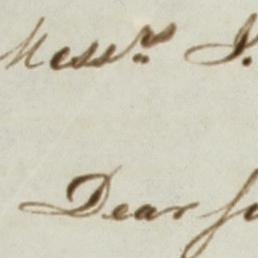 Messrs J.
Dear